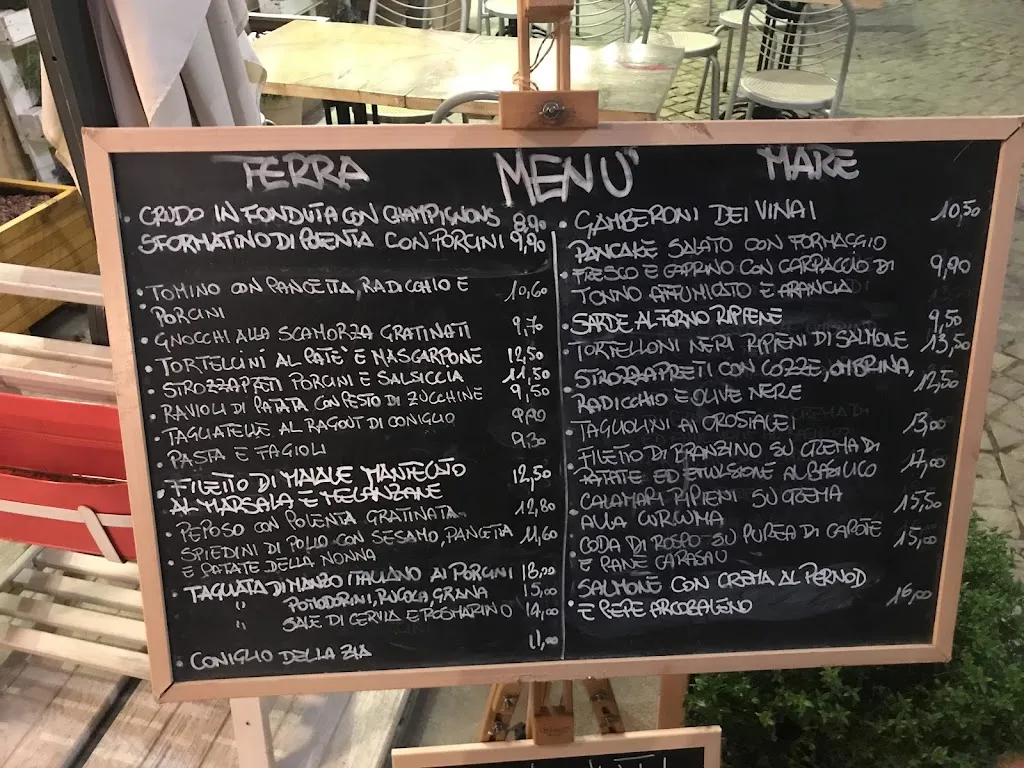 MENU'
TERRA
CRUDO IN FONDUTA CON CHAMPIGNONS 8,90
SFORMATINO DI POLENTA CON PORCINI 9,90
TOMINO CON PANCETTA, RADICCHIO E 10,60
PORCINI
GNOCCHI ALLA SCAMORZA GRATINATI 9,70
TORTELLINI AL PATE' E MASCARPONE 12,50
STROZZAPRETI PORCINI E SALSICCIA 11,50
RAVIOLI DI PATATA CON PESTO DI ZUCCHINE 9,50
TAGLIATELLE AL RAGOUT DI CONIGLIO 9,90
PASTA E FAGIOLI 9,30
FILETTO DI MAIALE MANTECATO 12,50
AL MARSALA E MELANZANE
PEPOSO CON POLENTA GRATINATA 12,80
SPIEDINI DI POLLO CON SESAMO, PANCETTA 11,60
E PATATE DELLA NONNA
TAGLIATA DI MANZO ITALIANO AI PORCINI 18,00
" POMODORINI, RUCOLA, GRANA 15,00
" SALE DI CERVIA E ROSMARINO 14,00
CONIGLIO DELLA ZIA 11,00
MARE
GAMBERONI DEI VINAI 10,50
PANCAKE SALATO CON FORMAGGIO
FRESCO E CAPRINO CON CARPACCIO DI 9,90
TONNO AFFUMICATO E ARANCIA
SARDE AL FORNO RIPIENE 9,50
TORTELLONI NERI RIPIENI DI SALMONE 13,50
STROZZAPRETI CON COZZE, OMBRINA, 12,50
RADICCHIO E OLIVE NERE
TAGLIOLINI AI CROSTACEI 13,00
FILETTO DI BRANZINO SU CREMA DI 17,00
PATATE ED EMULSIONE AL BASILICO
CALAMARI RIPIENI SU CREMA 15,50
ALLA CURCUMA
CODA DI ROSPO SU PUREA DI CAROTE 15,00
E PANE CARASAU
SALMONE CON CREMA AL PERNOD
E PEPE ARCOBALENO 16,00